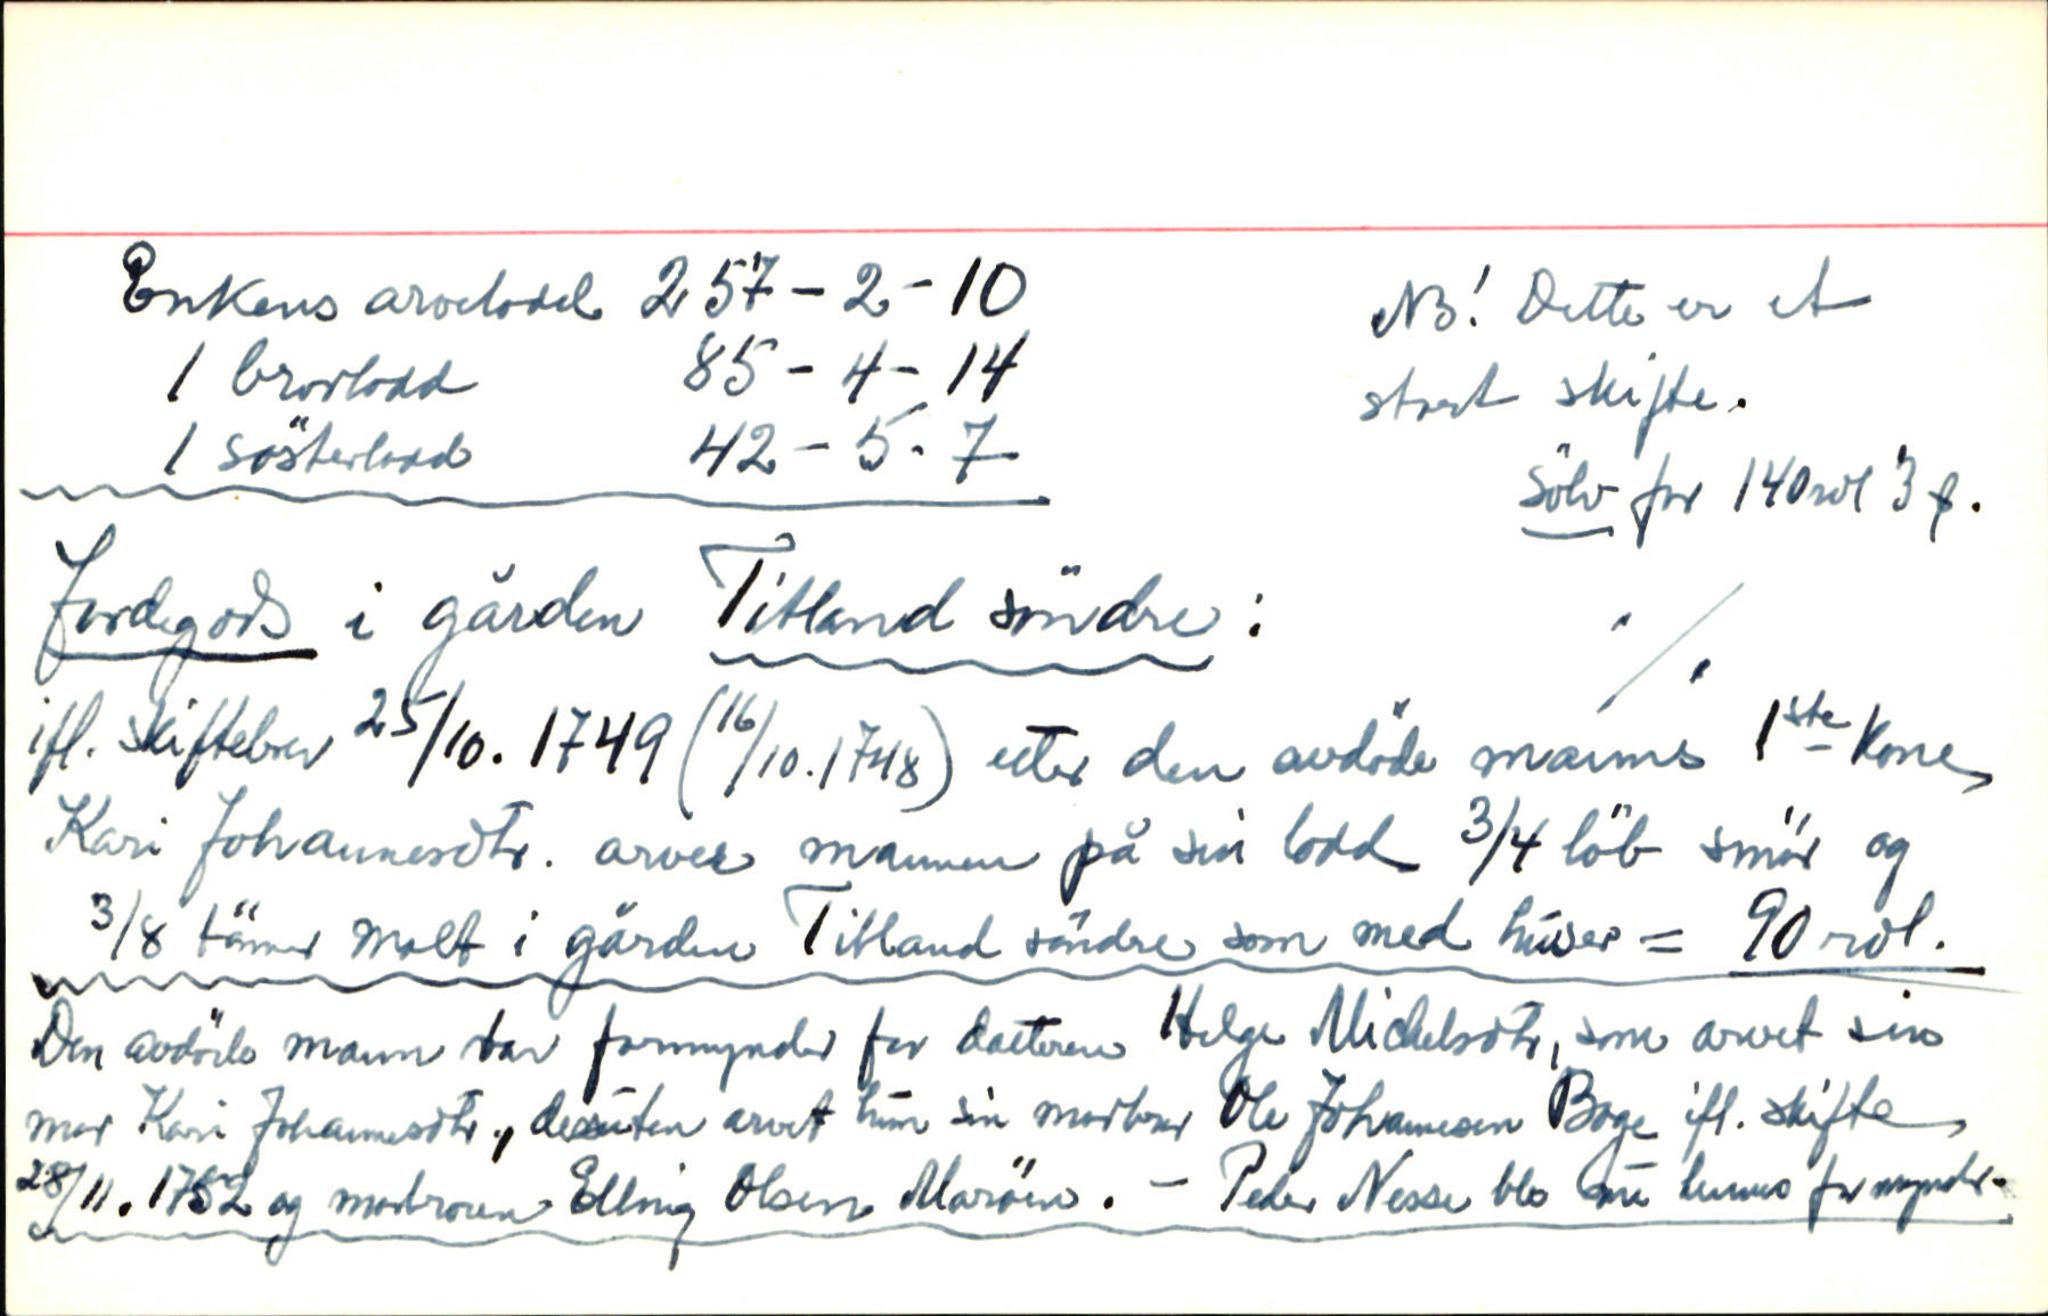 Enkens arvelodd 257 - 2 - 10
1 brorlodd 85 - 4 - 14
1 sösterlodd 42 - 5 - 7
NB! Dette er et
stort skifte.
Sölv for 140 rdl 3 ß.
Jordegods i gården Titland söndre :
ifl. skiftebrev 25/10. 1749 (16/10. 1748) etter den avdöde manns 1ste kone,
Kari Johannesdtr. arver mannen på sin lodd 3/4 löb smör og
3/8 tönner malt i gården Titland söndre som med huser = 90 rdl.
Den avdöde mann var formynder for datteren Helge Michelsdtr, som arvet sin
mor Kari Johannesdtr., dessuten arvet hun sin morbror Ole Johannesen Boge ifl. skifte
28/11. 1752 og morbroren Elling Olsen Maröen. - Peder Nesse blev nu hennes formynder.